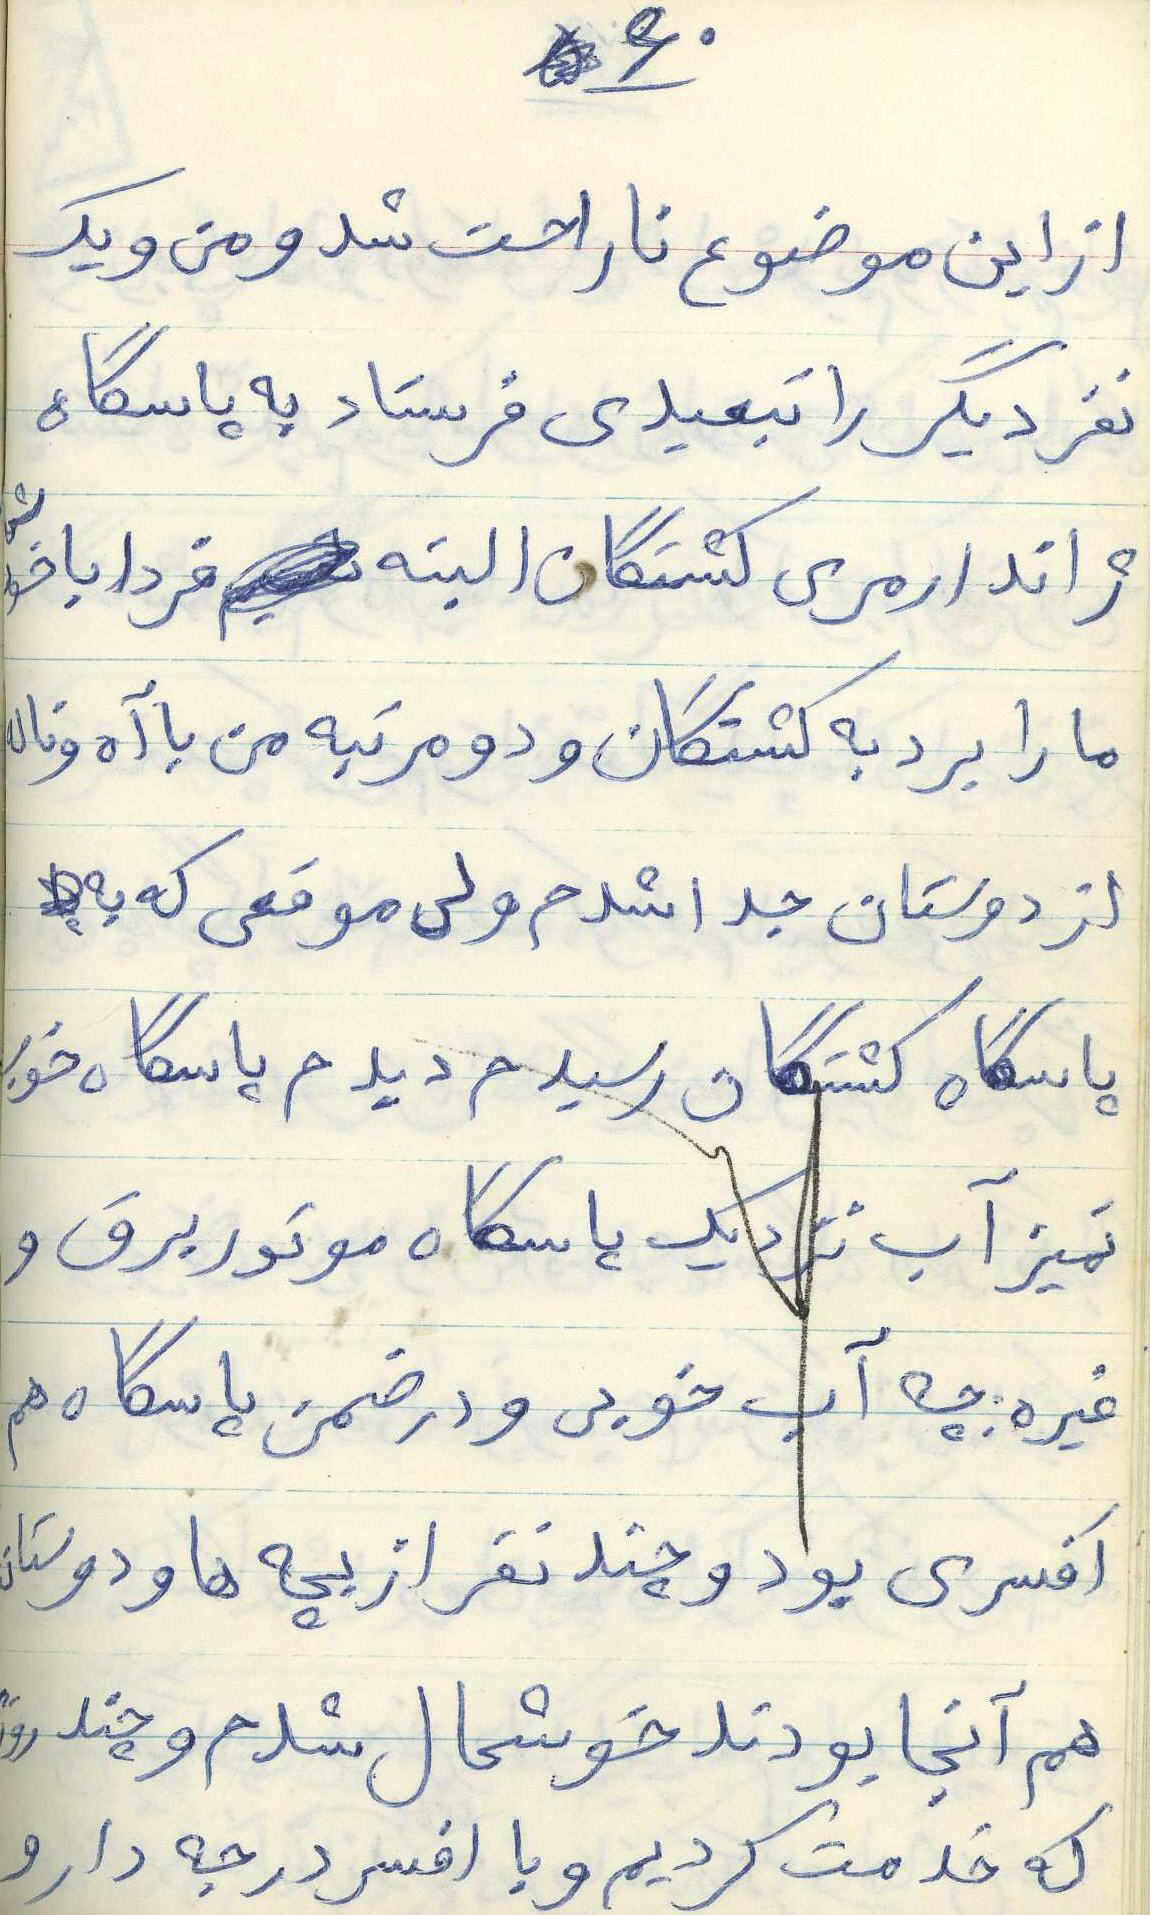 ۶۰
از این موضوع ناراحت شد و من و یک
نفر دیگر را تبعیدی فرستاد به پاسگاه
ژاندارمری کشتگان البته فردا با خودش
ما را برد به کشتگان و دو مرتبه من با آه و ناله
از دوستان جدا شدم ولی موقعی که به
پاسگاه کشتگان رسیدم دیدم پاسگاه خوب
تمیز آب نزدیک پاسگاه موتور برق و
غیره چه آب خوبی و در ضمن پاسگاه هم
افسری بود و چند نفر از بچه ها و دوستان
هم آنجا بودند خوشحال شدم و چند روز
که خدمت کردیم و با افسر درجه دار و